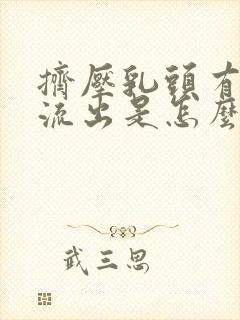 擠壓乳頭有
流出是怎麼
武三思